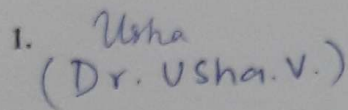 1. Usha
(Dr. Usha. V.)